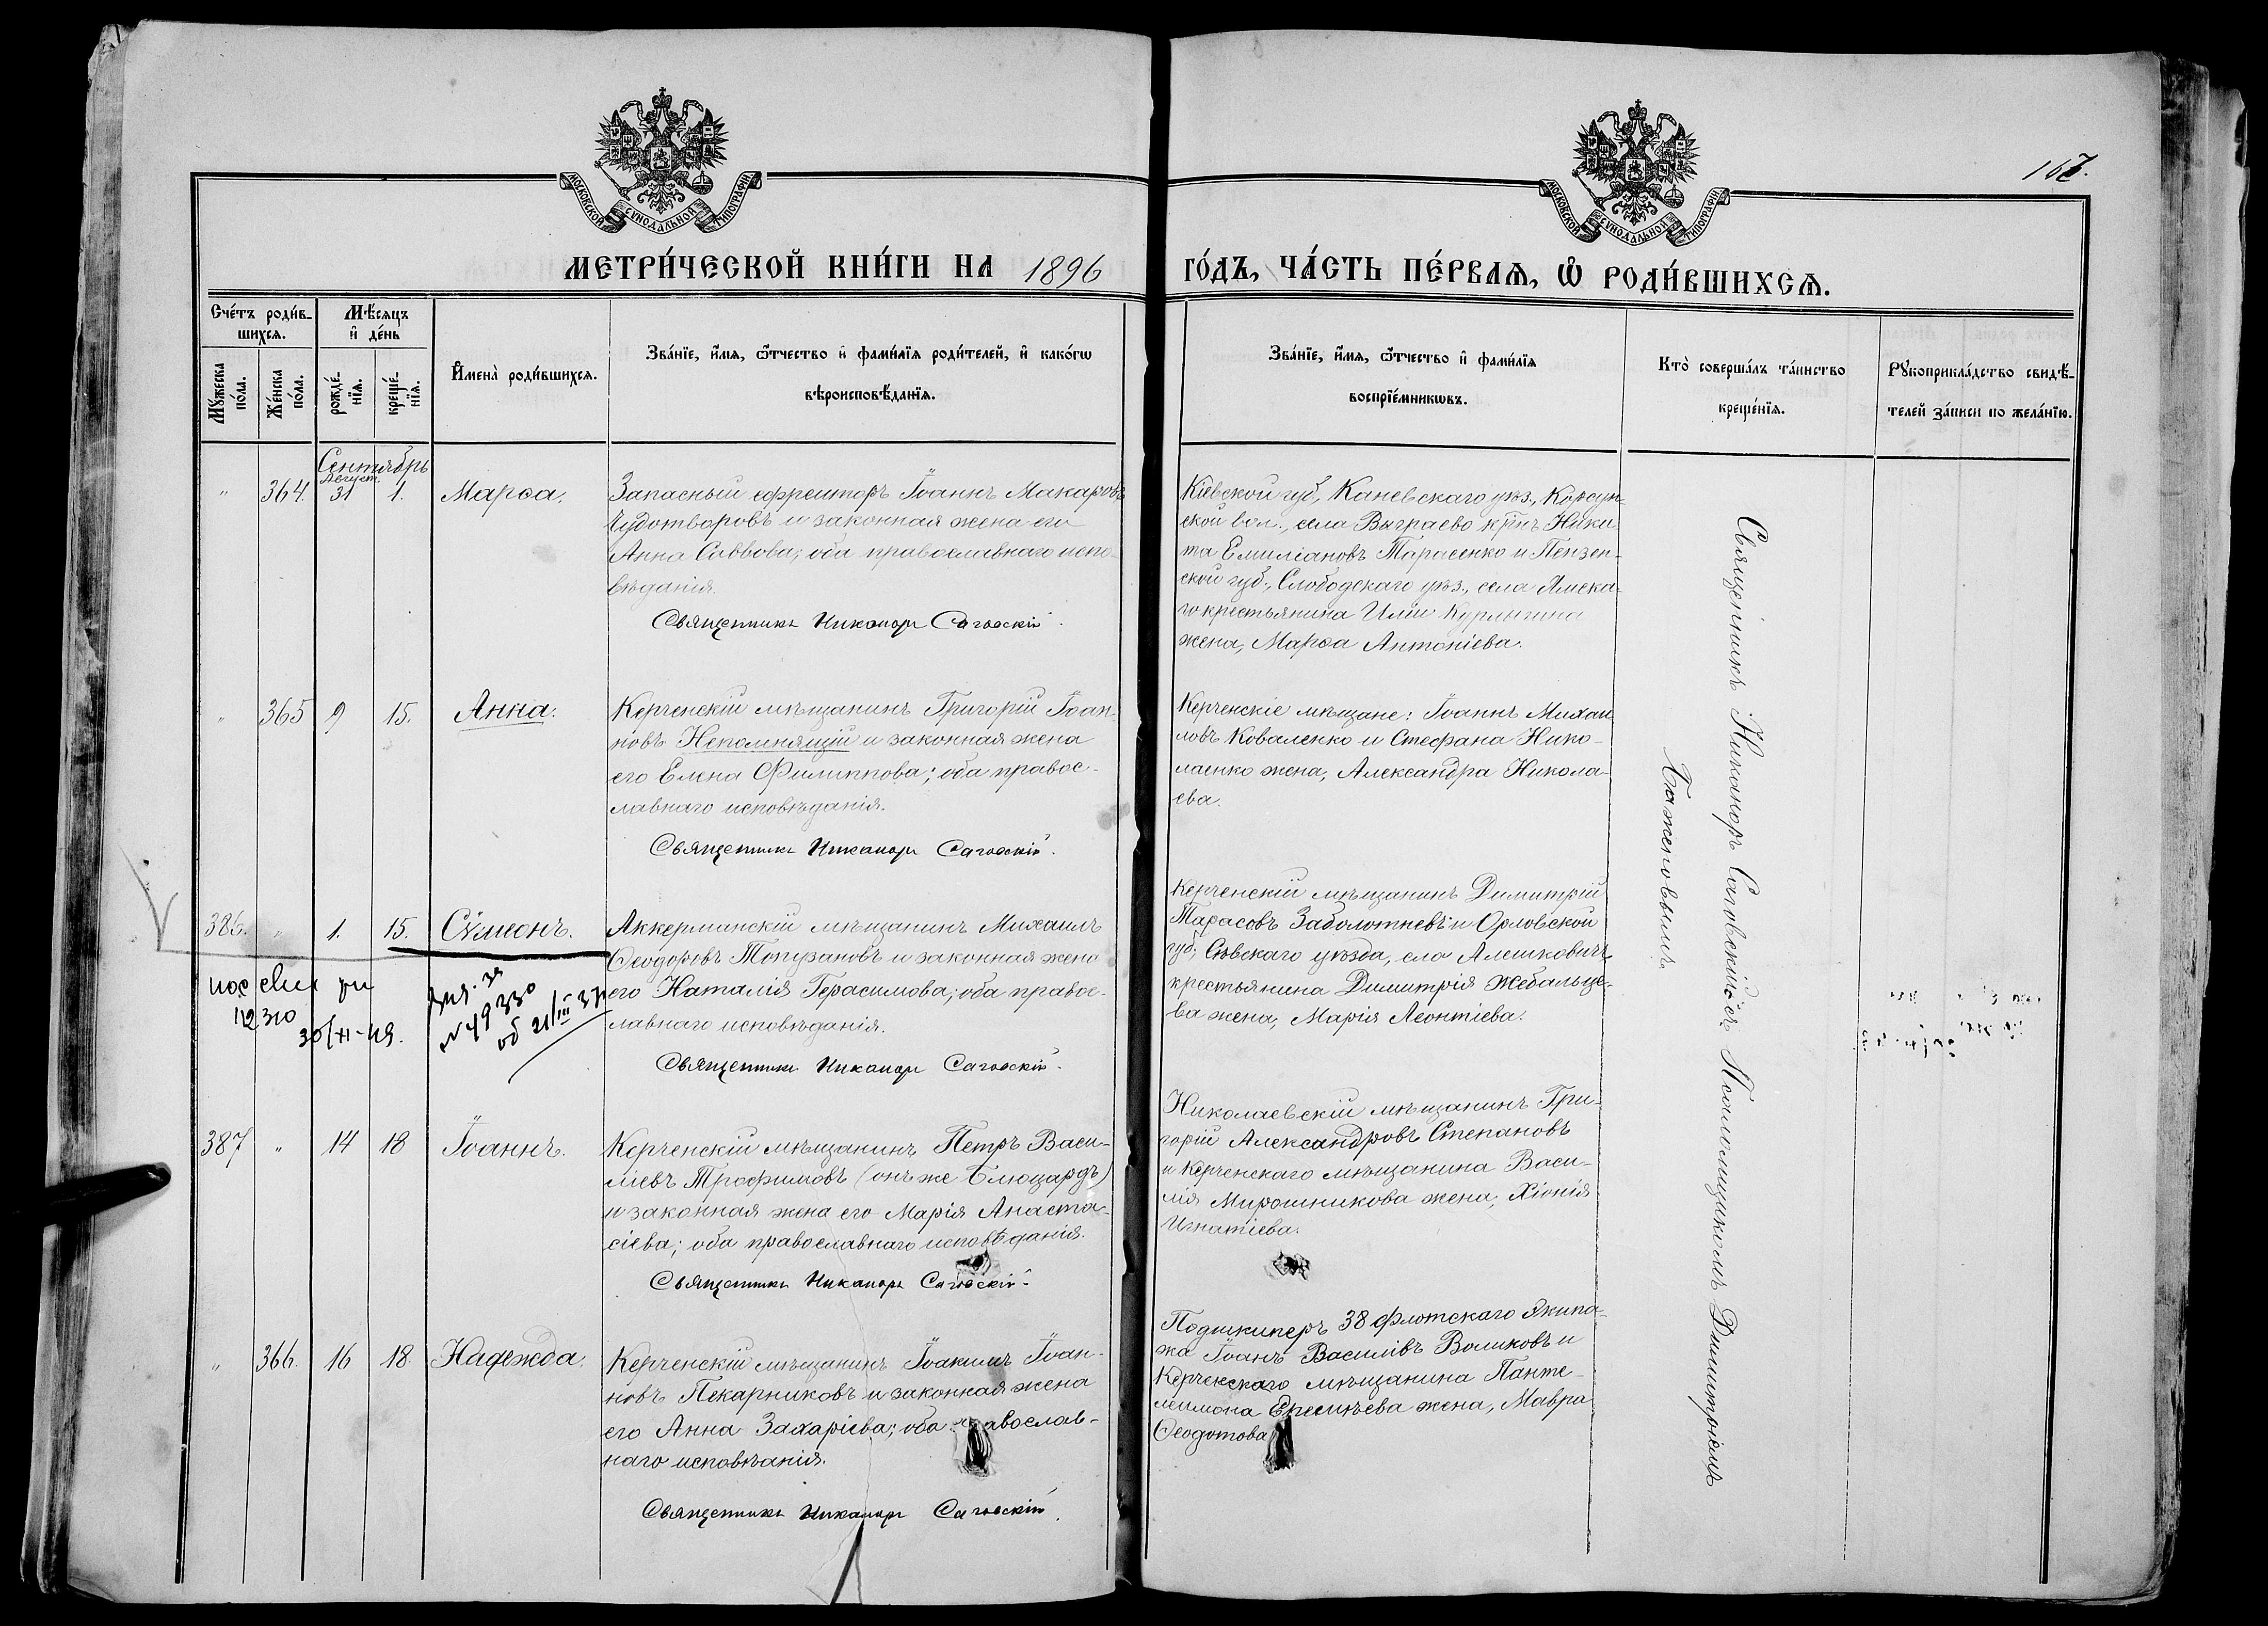 МОСКОВСКОЙ СѴНОДАЛЬНОЙ ТИПОГРАФІИ
МОСКОВСКОЙ СѴНОДАЛЬНОЙ ТИПОГРАФІИ
МЕТРИ́ЧЕСКОЙ КНИ́ГИ НА 1896
ГО́ДЪ, ЧА́СТЬ ПЕ́РВАѦ, Ѡ҆ РОДИ́ВШИХСѦ.
Сче́тъ роди́в-
шихсѧ.
Мѣ́сѧцъ
и҆ де́нь
Мꙋ́жеска
по́ла.
Же́нска
по́ла.
рожде́-
нїѧ.
креще́-
нїѧ.
И҆мена̀ роди́вшихсѧ.
Зва́нїе, и҆́мѧ, ѻ҆́тчество и҆ фами́лїѧ роди́телей, и҆ како́гѡ
вѣроисповѣ́данїѧ.
Зва́нїе, и҆́мѧ, ѻ҆́тчество и҆ фами́лїѧ
воспрїе́мникѡвъ.
Кто̀ соверша́лъ та́инство
креще́нїѧ.
Рꙋкоприкла́дство свидѣ́-
телей за́писи по жела́нїю.
Сентябрь
Август.
" 364. 31 1. Марѳа.
Запасный ефрейторъ Іоаннъ Макаровъ
Чудотворовъ и законная жена его
Анна Саввова; оба православнаго испо-
вѣданія.
Священникъ Никаноръ Саговскій.
Кіевской губ., Каневскаго уѣз., Корсун-
ской вол., села Выграево кр̃нъ Ники
та Емиліановъ Тарасенко и Пензен-
ской губ., Слободскаго уѣз., села
го крестьянина Иліи Курлыгина
жена, Марѳа Антоніева.
" 365 9 15. Анна.
Керченскій мѣщанинъ Григорій Іоан-
новъ Непомнящій и законная жена
его Елена Филиппова; оба правос-
лавнаго исповѣданія.
Священникъ Никаноръ Саговскій.
Керченскіе мѣщане: Іоаннъ Михаи
ловъ Коваленко и Стефана Нико-
лаенко жена, Александра Никола-
ева.
386. " 1. 15. Сѵмеонъ.
Аккерманскій мѣщанинъ Михаилъ
Ѳеодоровъ Топузановъ и законная жена
его Наталія Герасимова; оба правос-
лавнаго исповѣданія.
Священникъ Никаноръ Саговскій.
Керченскій мѣщанинъ Димитрій
Тарасовъ Заболотневъ и Орловской
губ., Сѣвскаго уѣзда, села Алешковичъ
крестьянина Димитрія Жебальце-
ва жена, Марія Леонтіева.
30/XI-49.
№ 49330
об 21/III 37
387 " 14 18 Іоаннъ.
Керченскій мѣщанинъ Петръ Васи-
ліевъ Трофимовъ (онъ же Блюцардъ)
и законная жена его Марія Анаста-
сіева; оба православнаго исповѣданія.
Священникъ Никаноръ Саговскій.
Николаевскій мѣщанинъ Гри-
горій Александровъ Степановъ
и Керченскаго мѣщанина Васи-
лія Мирошникова жена, Хіонія
Игнатіева.
" 366. 16 18. Надежда.
Керченскій мѣщанинъ Іоакимъ Іоан-
новъ Пекарниковъ и законная жена
его Анна Захаріева; оба православ-
наго исповѣанія.
Священникъ Никаноръ Саговскій.
Подшкиперъ 38 флотскаго экипа-
жа Іоанъ Василівъ Воликовъ и
Керченскаго мѣщанина Панте-
леимона жена, Мавра
Ѳеодотова
Священникъ Никаноръ Саговскій съ Псаломщикомъ Димитріемъ
Баженовымъ